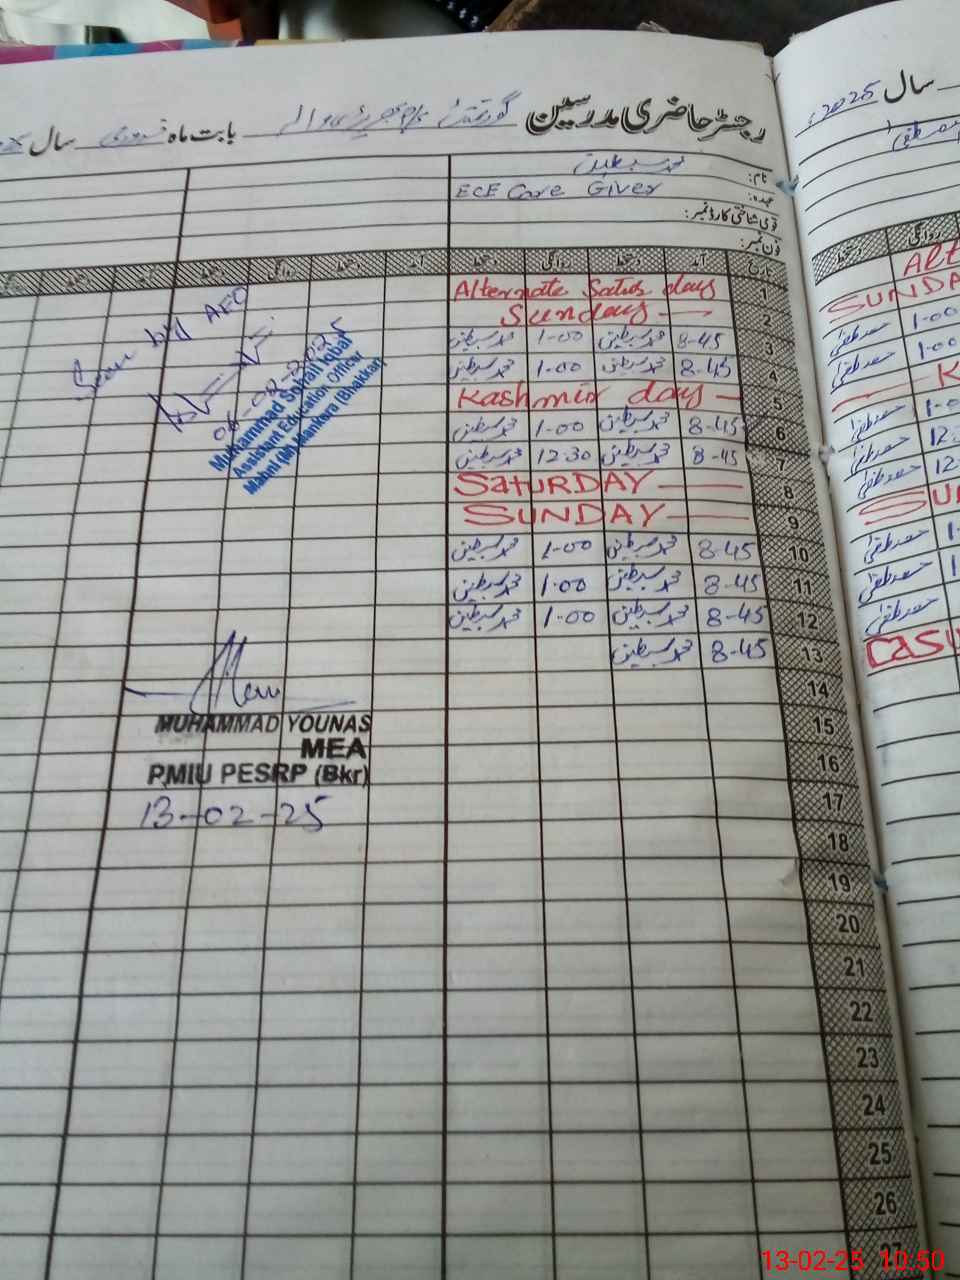 رجسٹر حاضری مدرسین گورنمنٹ بابت ماہ فروری سال
نام: محمد سبطین
عہدہ: ECE Care Giver
قومی شناختی کارڈ نمبر:
فون نمبر:
تاریخ آمد دستخط روانگی دستخط آمد دستخط روانگی دستخط آمد
1 Alternate Satur days
2 Sundays
3 8-45 محمد سبطین 1-00 محمد سبطین
4 8-45 محمد سبطین 1-00 محمد سبطین
5 Kashmir days
6 8-45 محمد سبطین 1-00 محمد سبطین
7 8-45 محمد سبطین 12:30 محمد سبطین
8 SATURDAY
9 SUNDAY
10 8-45 محمد سبطین 1-00 محمد سبطین
11 8-45 محمد سبطین 1-00 محمد سبطین
12 8-45 محمد سبطین 1-00 محمد سبطین
13 8-45 محمد سبطین
14
15
16
17
18
19
20
21
22
23
24
25
26
27
Seen by AEO
06-02-2025
Muhammad Sohail Iqbal
Assistant Education Officer
(M) Mankera (Bhakkar)
MUHAMMAD YOUNAS
MEA
PMIU PESRP (Bkr)
13-02-25
سال 2025
روانگی دستخط
SUNDA
1-00
1-00
K
1-0
12:
12
SU
CASU
13-02-25 10:50